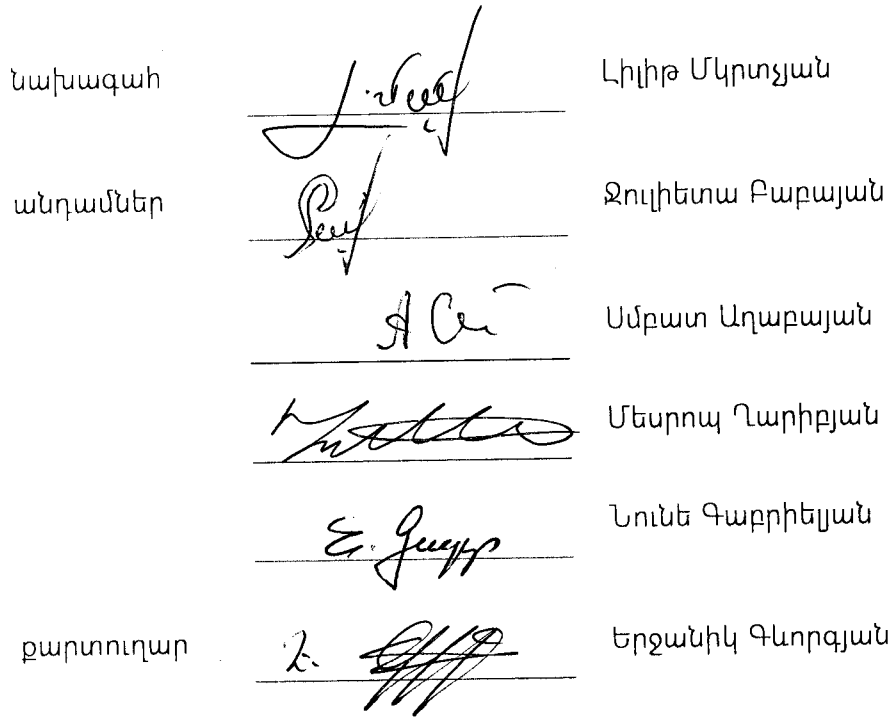 նախագահ Լիլիթ Մկրտչյան
անդամներ Ջուլիետա Բաբայան
Սմբատ Աղաբայան
Մեսրոպ Ղարիբյան
Նունե Գաբրիելյան
քարտուղար Երջանիկ Գևորգյան